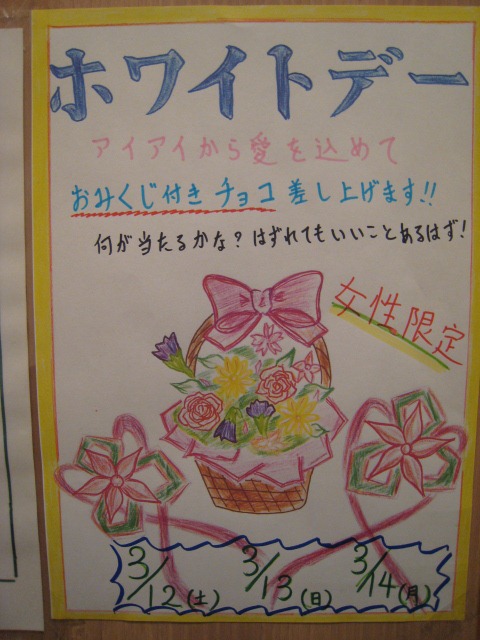 ホワイトデー
アイアイから愛を込めて
おみくじ付きチョコ差し上げます!!
何が当たるかな?はずれてもいいことあるはず!
女性限定
3/12(土) 3/13(日) 3/14(月)